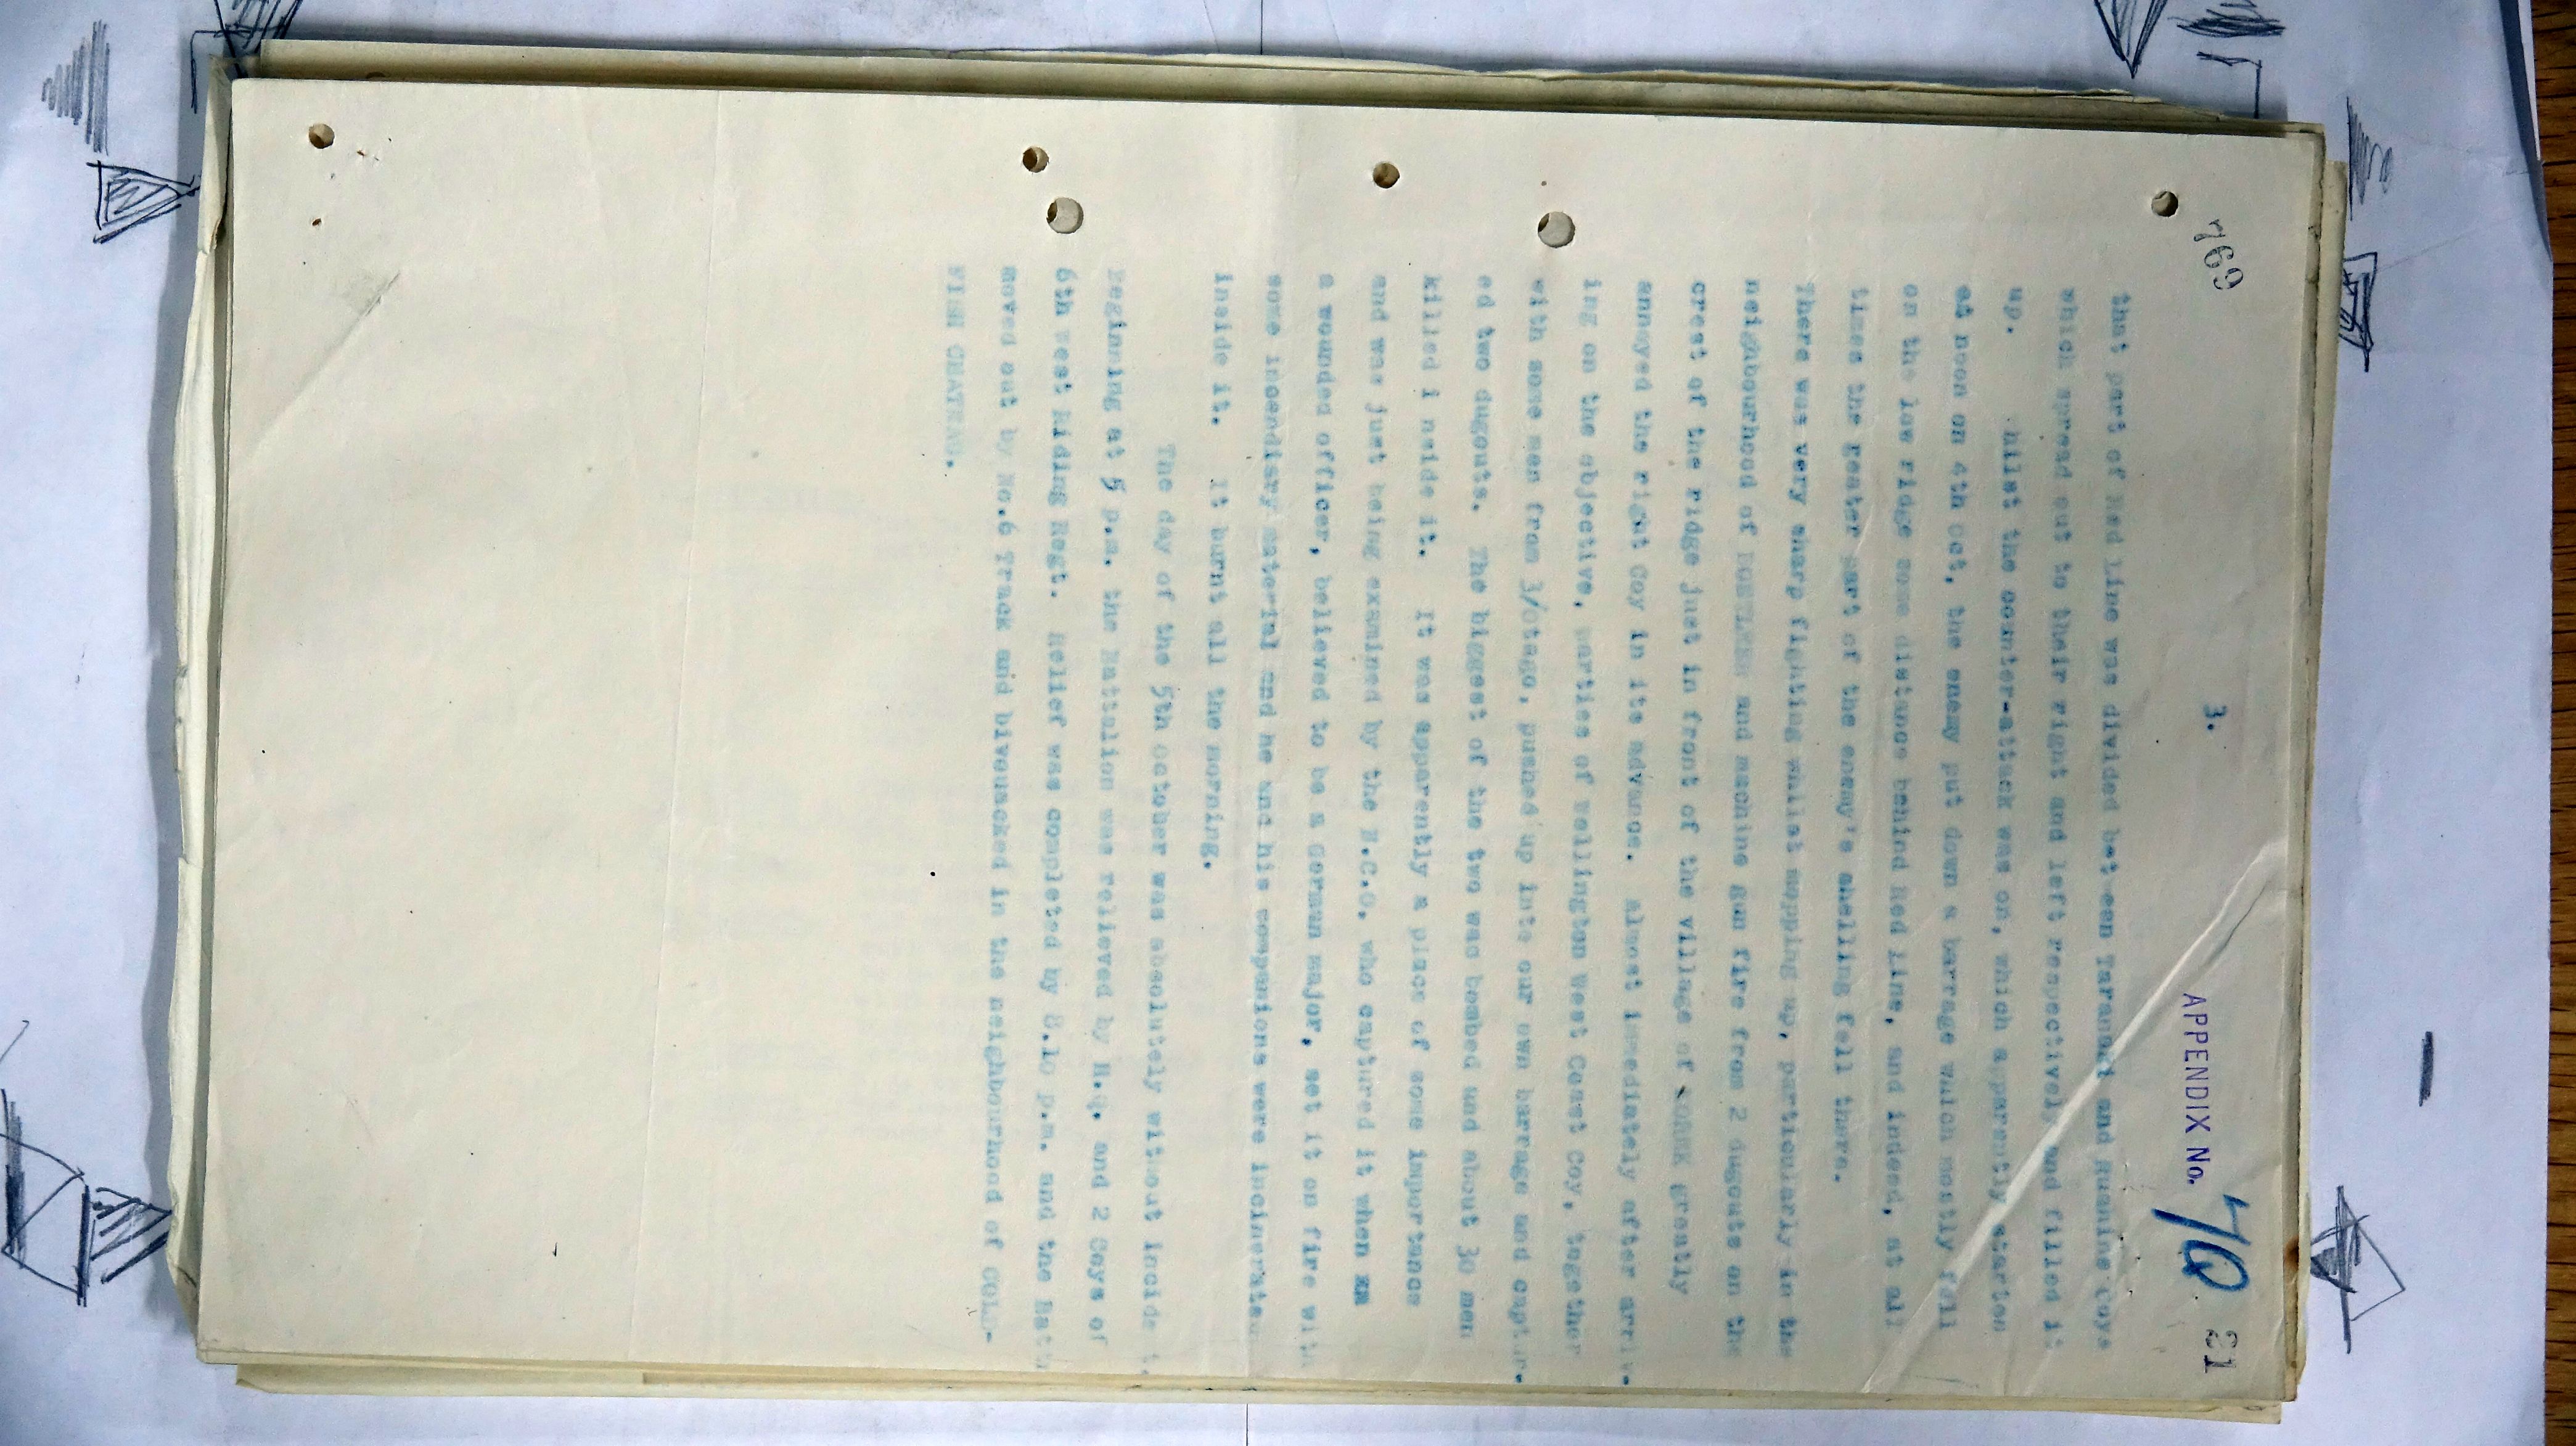 769
3.
APPENDIX No. 40 21
that part of Red Line was divided bet een Taranaki and Ruahine Coys
which spread out to their right and left respectively and filled it
up. hilst the counter-attack was on, which apparently started
at noon on 4th Oct, the enemy put down a barrage which mostly fell
on the low ridge some distance behind Red Line, and indeed, at all
times the reater part of the enemy's shelling fell there.
There was very sharp fighting whilst mopping up, particularly in the
neighbourhood of and machine gun fire from 2 dugouts on the
crest of the ridge just in front of the village of KOREK greatly
annoyed the right Coy in its advance. Almost immediately after arriv-
ing on the objective, parties of Wellington West Coast Coy, together
with some men from 3/Otago, pushed up into our own barrage and captur-
ed two dugouts. The biggest of the two was bombed and about 30 men
killed i nside it. It was apparently a place of some importance
and was just being examined by the N.C.O. who captured it when xm
a wounded officer, believed to be a German major, set it on fire with
some incendiary material and he and his companions were incinerate
inside it. It burnt all the morning.
The day of the 5th October was absolutely without incide t.
Beginning at 5 p.m. the Battalion was relieved by H.Q. and 2 Coys of
6th West Riding Regt. Relief was completed by 8.10 p.m. and the Batt
moved out by No.6 Track and bivouacked in the neighbourhood of GOLD-
FISH CHATEAU.